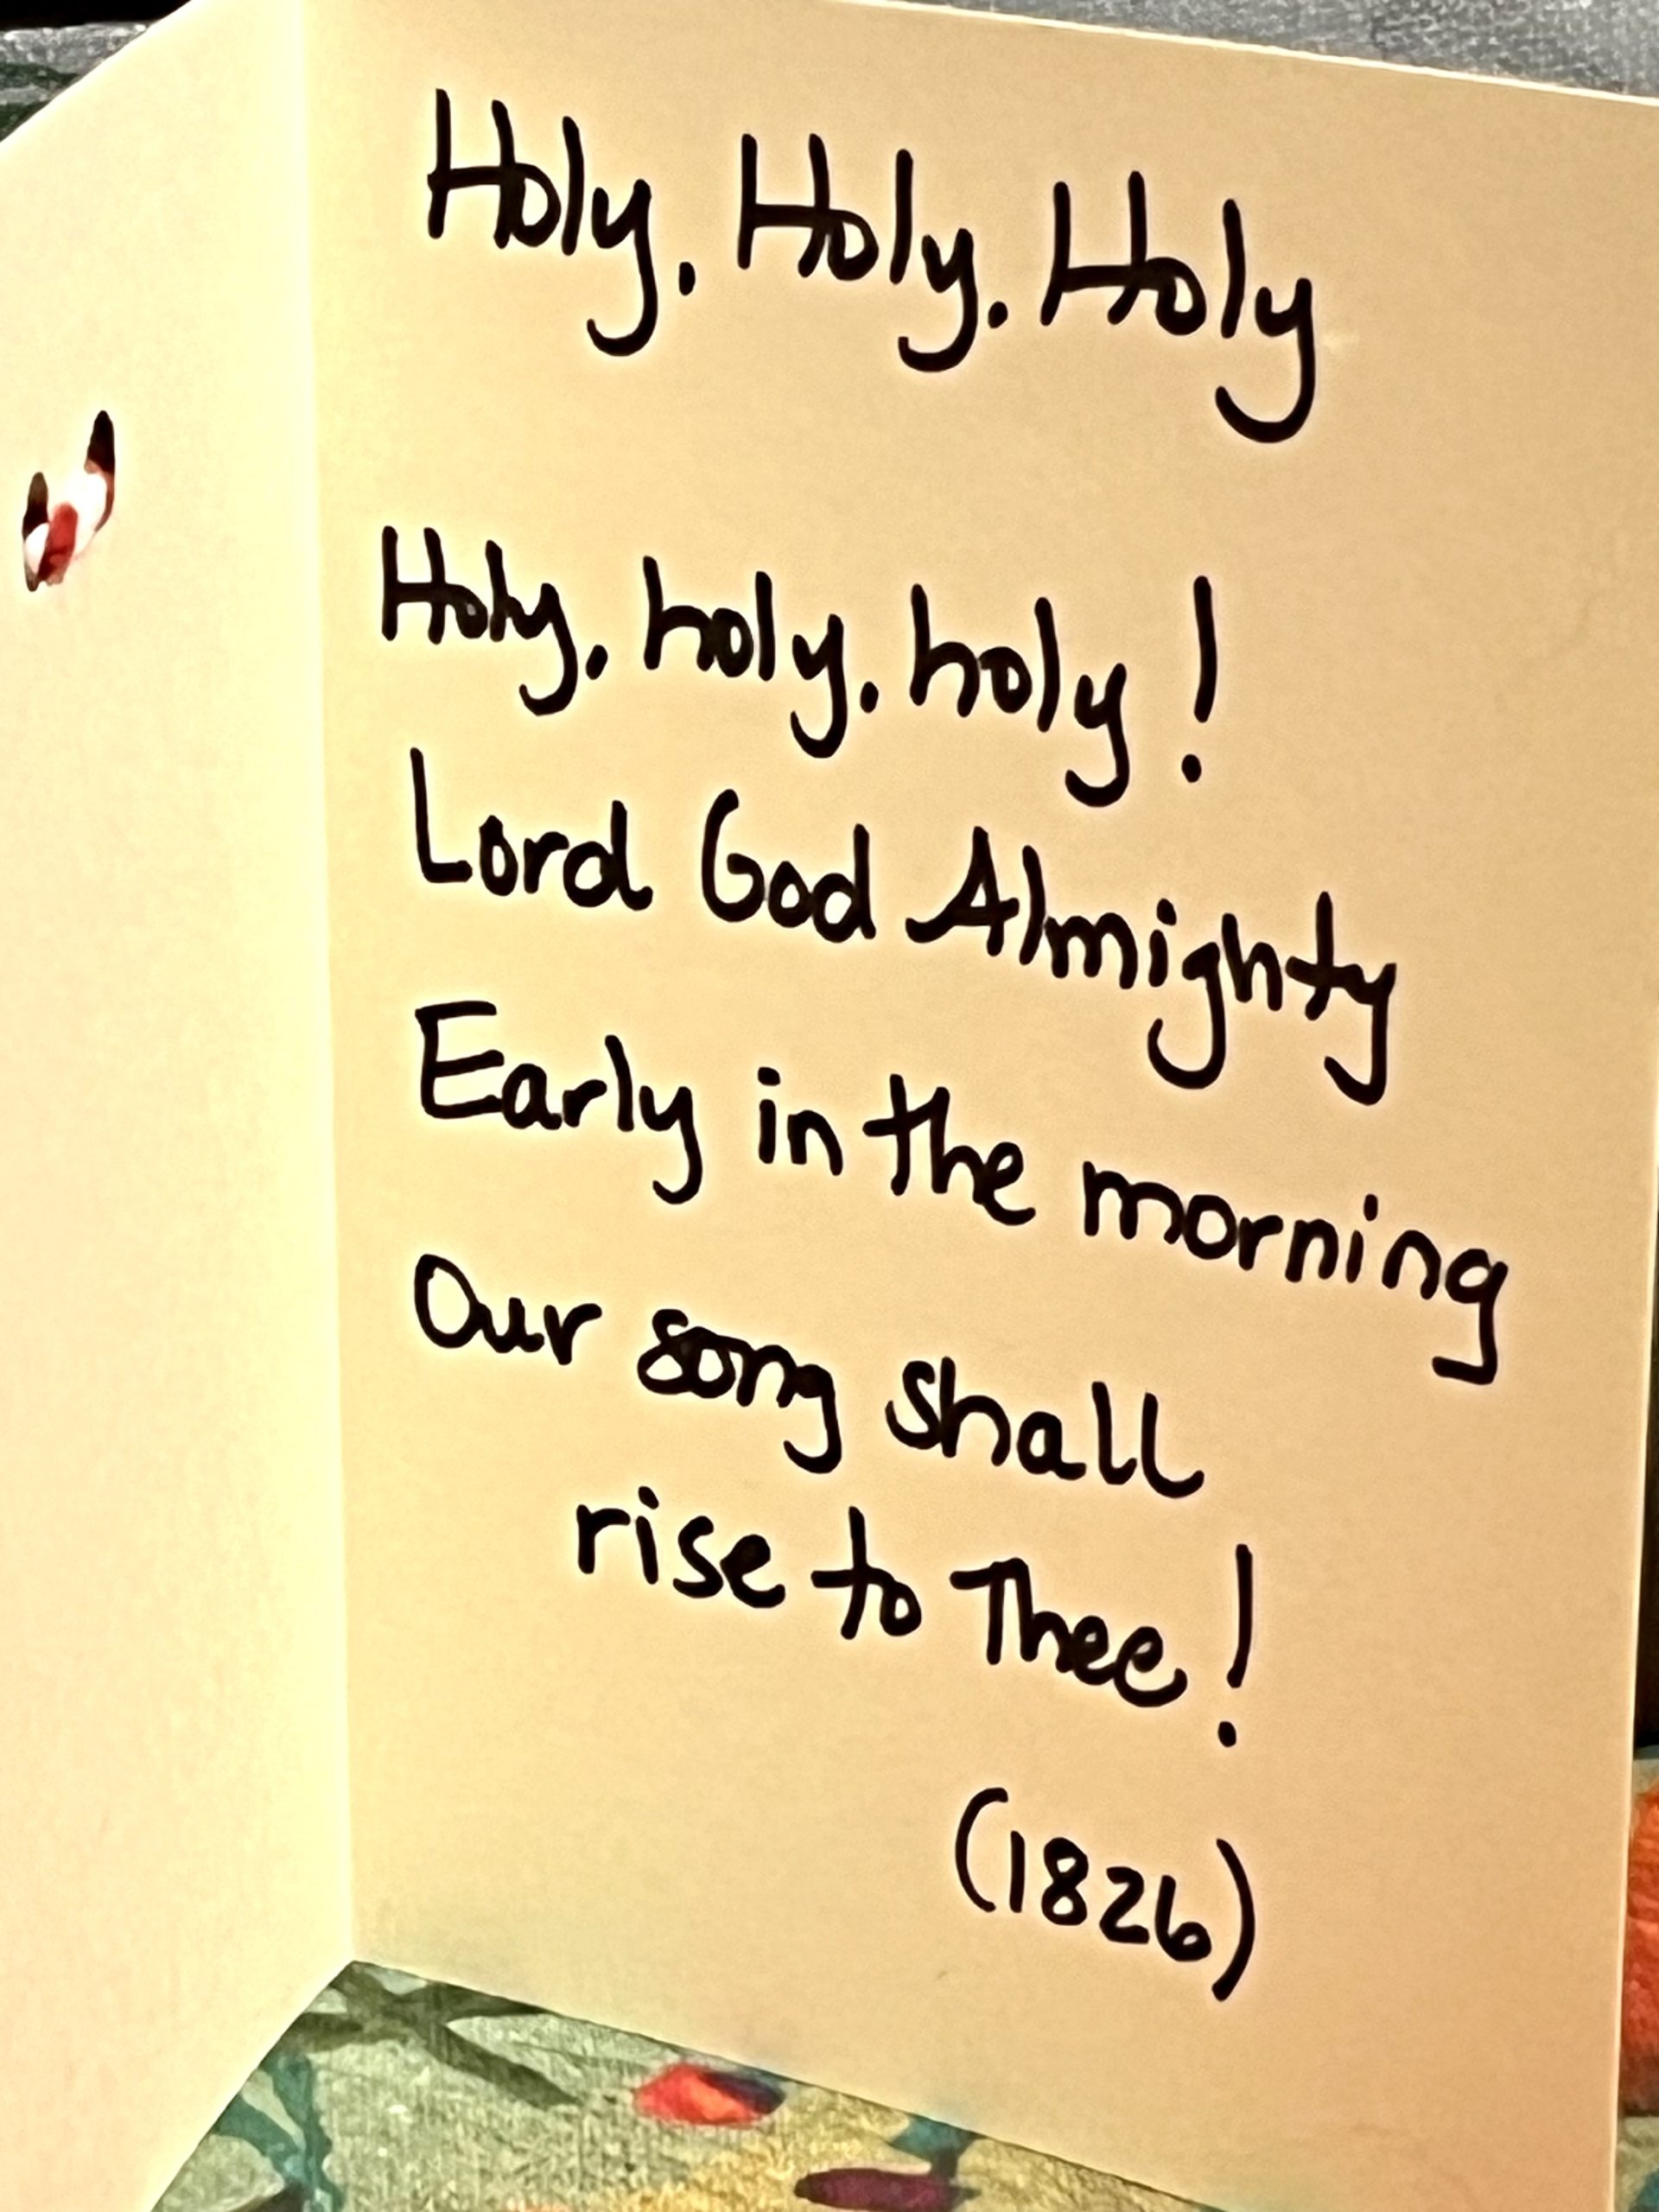 Holy. Holy. Holy
Holy. holy. holy!
Lord God Almighty
Early in the morning
Our song shall
rise to Thee!
(1826)